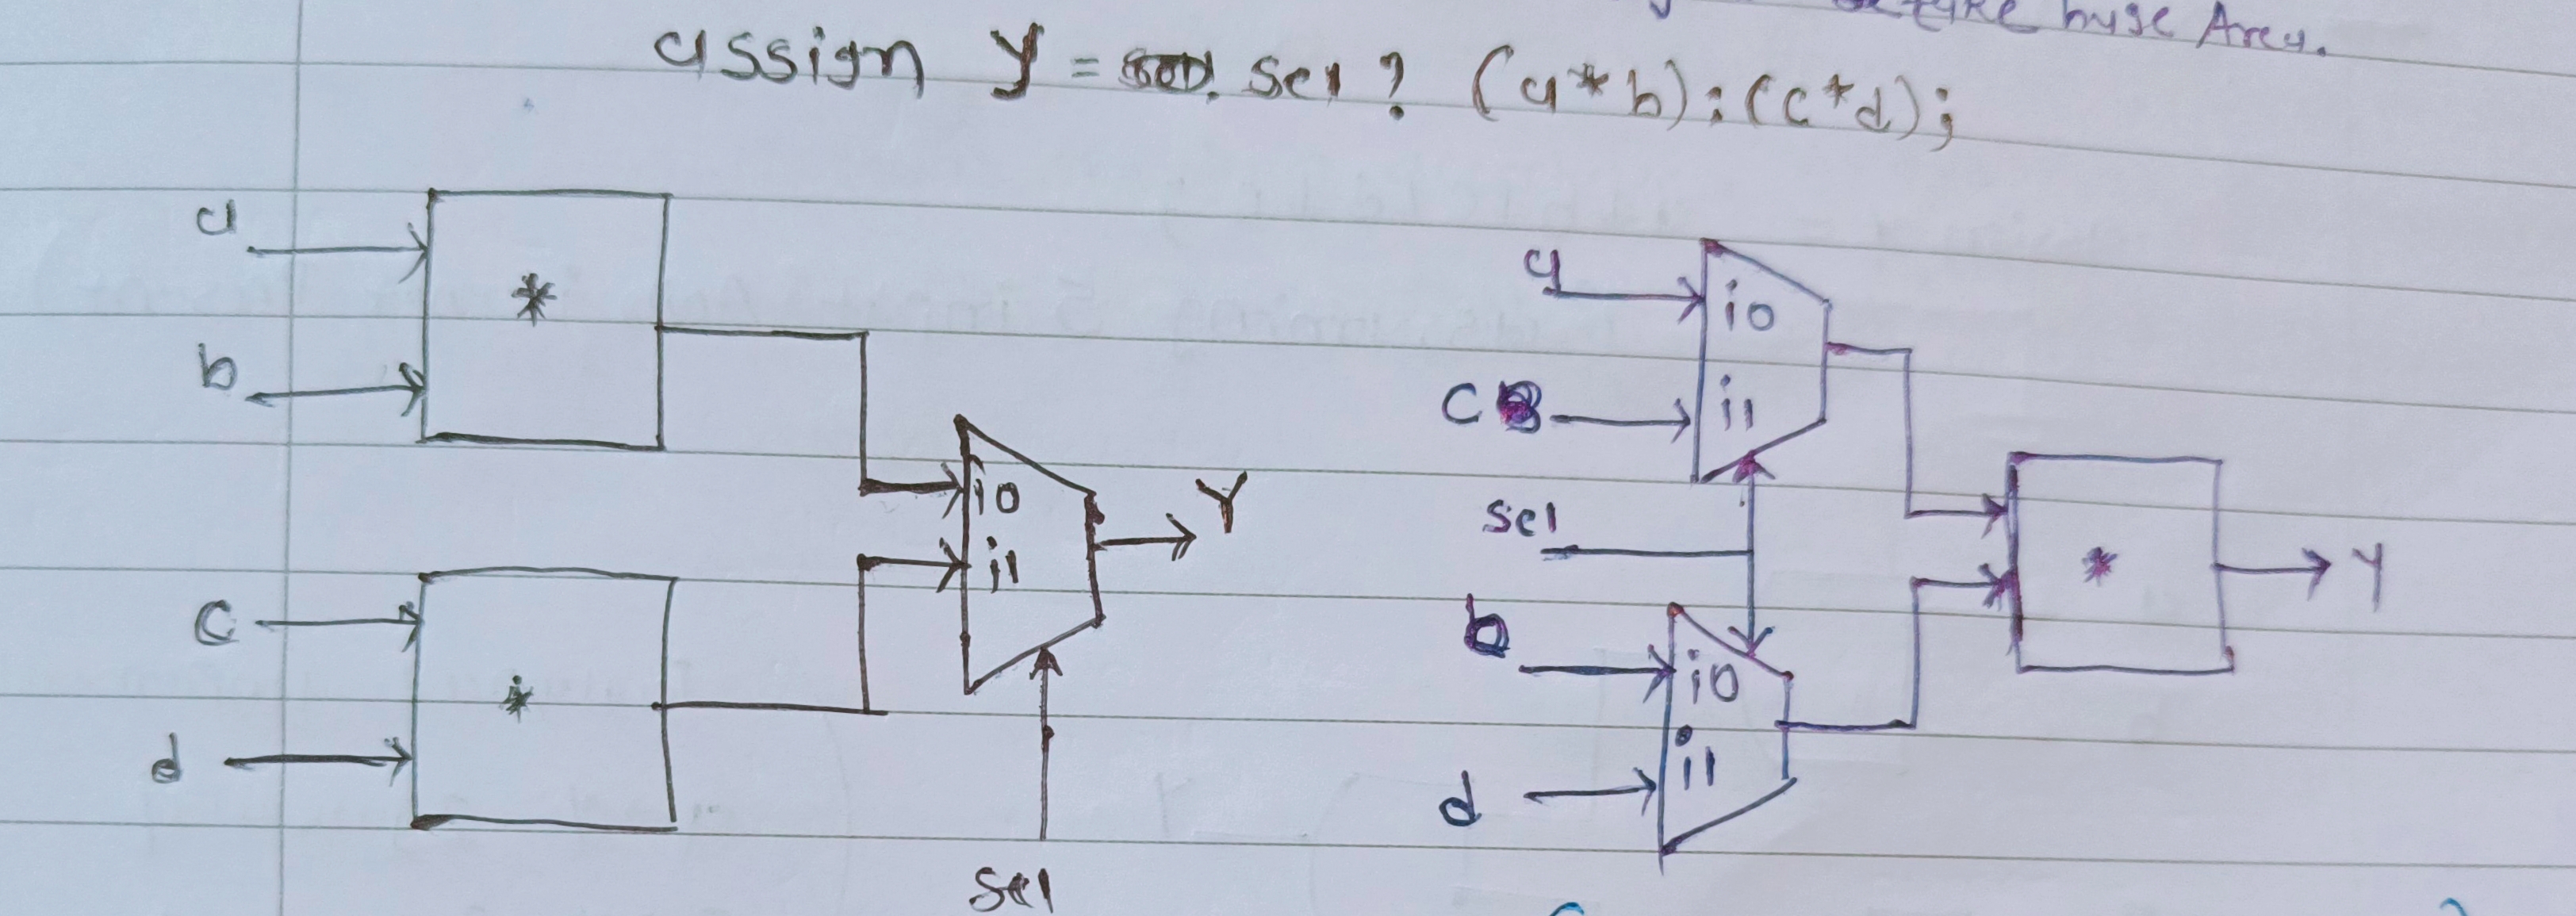 take huge Area.
assign y = sel ? (a*b):(c*d);
a
*
b
i0
i1
Y
c
*
d
sel
a
i0
c
i1
sel
*
y
b
i0
d
i1